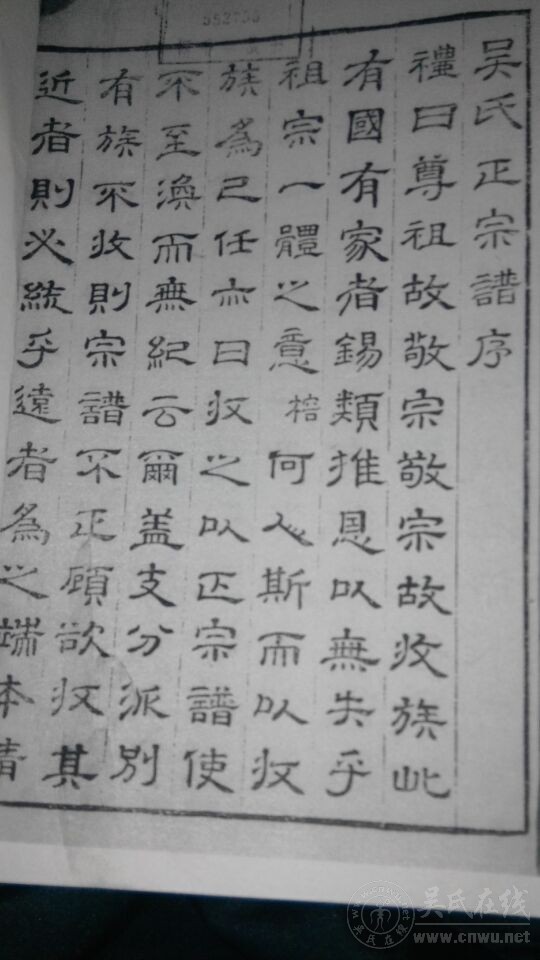 吳氏正宗譜序
禮曰尊祖故敬宗敬宗故收族此
有國有家者錫類推恩以無失乎
祖宗一體之意何人斯而以收
族為己任亦曰收之以正宗譜使
不至渙而無紀云爾盖支分派別
有族不收則宗譜不正顧欲收其
近者則必統乎遠者為之端本清
吴氏在线
www.cnwu.net
吴氏在线